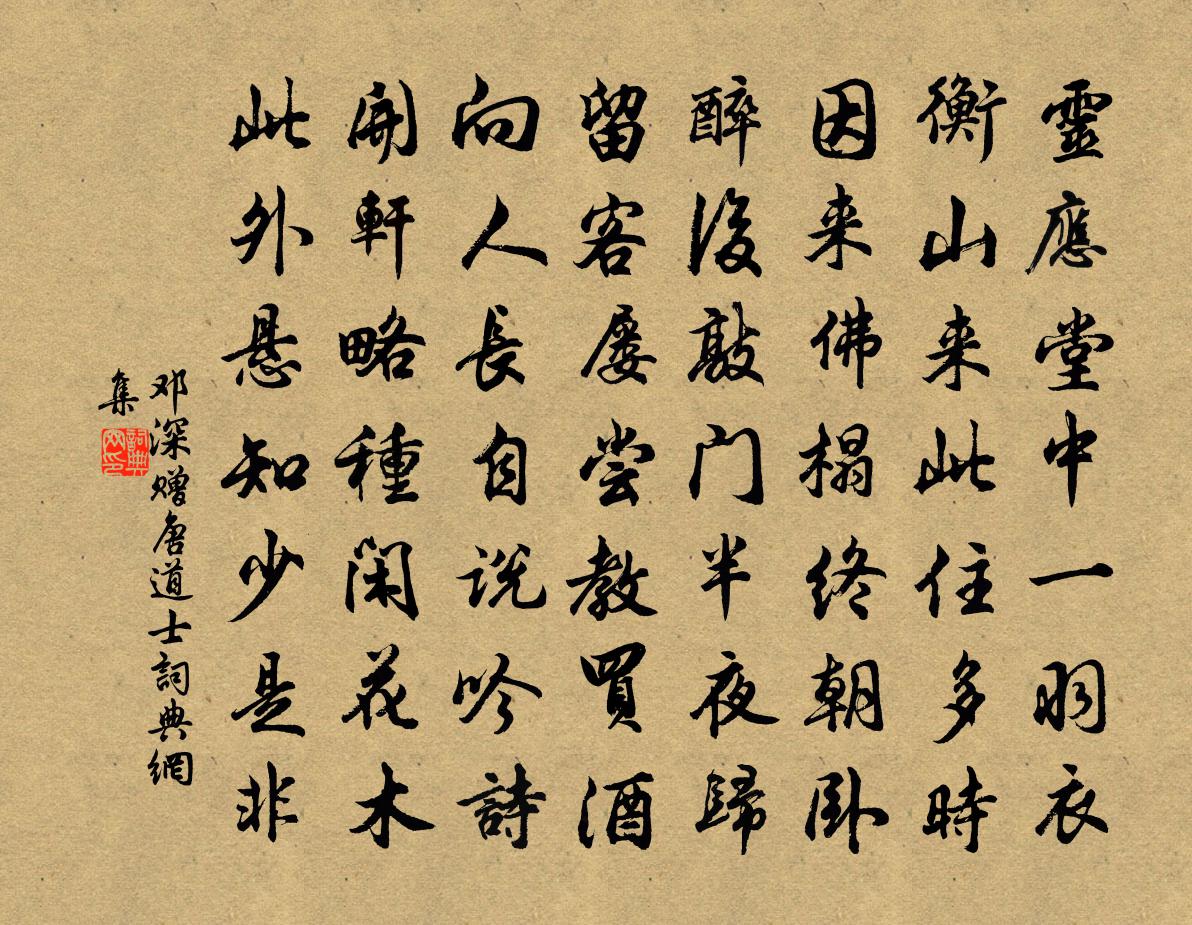 靈應堂中一羽衣
衡山来此住多時
因来佛榻终朝卧
醉後敲门半夜歸
留客屡尝教買酒
向人長自说吟詩
開軒略種閑花木
此外悬知少是非
邓深赠唐道士詞典網
集
詞典
网印